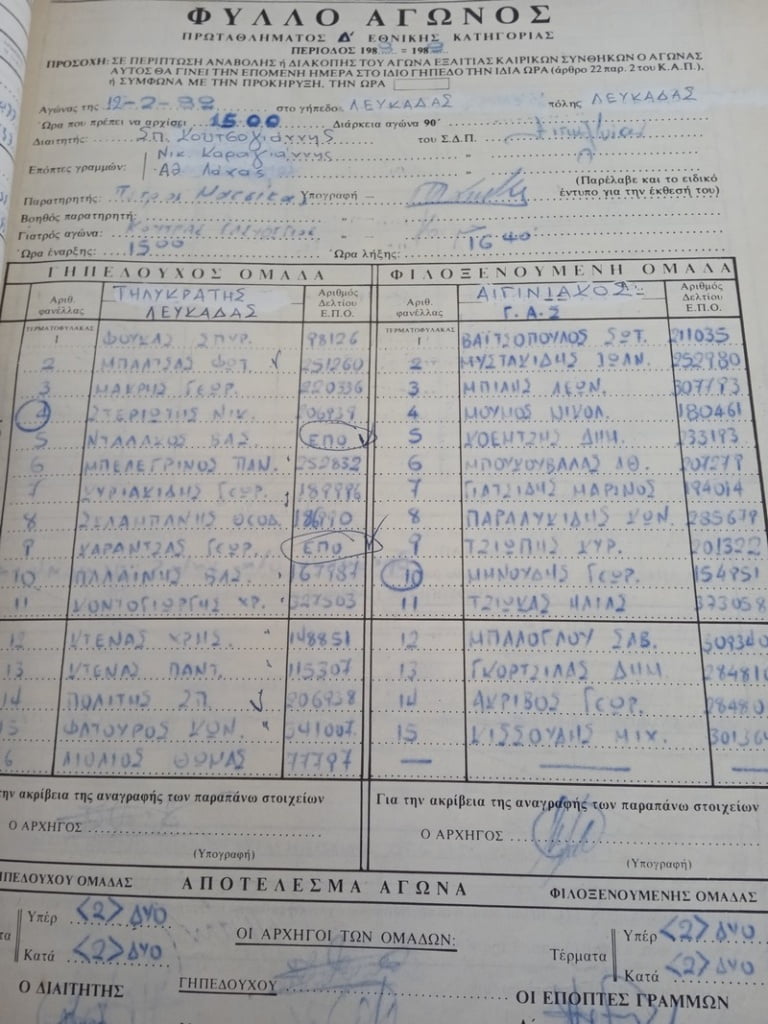 ΦΥΛΛΟ ΑΓΩΝΟΣ
ΠΡΩΤΑΘΛΗΜΑΤΟΣ Δ' ΕΘΝΙΚΗΣ ΚΑΤΗΓΟΡΙΑΣ
ΠΕΡΙΟΔΟΣ 198 = 198
ΠΡΟΣΟΧΗ: ΣΕ ΠΕΡΙΠΤΩΣΗ ΑΝΑΒΟΛΗΣ ή ΔΙΑΚΟΠΗΣ ΤΟΥ ΑΓΩΝΑ ΕΞΑΙΤΙΑΣ ΚΑΙΡΙΚΩΝ ΣΥΝΘΗΚΩΝ Ο ΑΓΩΝΑΣ
ΑΥΤΟΣ ΘΑ ΓΙΝΕΙ ΤΗΝ ΕΠΟΜΕΝΗ ΗΜΕΡΑ ΣΤΟ ΙΔΙΟ ΓΗΠΕΔΟ ΤΗΝ ΙΔΙΑ ΩΡΑ (άρθρο 22 παρ. 2 του Κ.Α.Π.).
ή ΣΥΜΦΩΝΑ ΜΕ ΤΗΝ ΠΡΟΚΗΡΥΞΗ. ΤΗΝ ΩΡΑ
Αγώνας της 12-2- στο γήπεδο ΛΕΥΚΑΔΑΣ πόλης ΛΕΥΚΑΔΑΣ
Ώρα που πρέπει να αρχίσει 15.00 Διάρκεια αγώνα 90΄
Διαιτητής: ΣΠ. ΚΟΥΤΣΟΓΙΑΝΝΗΣ του Σ.Δ.Π.
Επόπτες γραμμών: Νικ. Καραγιάννης "
Αθ. Λάχας "
Παρατηρητής: Υπογραφή – (Παρέλαβε και το ειδικό
έντυπο για την έκθεσή του)
Βοηθός παρατηρητή: "
Γιατρός αγώνα: "
Ώρα έναρξης: 15 00 Ώρα λήξης: 16 40
ΓΗΠΕΔΟΥΧΟΣ ΟΜΑΔΑ ΦΙΛΟΞΕΝΟΥΜΕΝΗ ΟΜΑΔΑ
Αριθ. φανέλλας ΤΗΛΥΚΡΑΤΗΣ ΛΕΥΚΑΔΑΣ Αριθμός Δελτίου Ε.Π.Ο. Αριθ. φανέλλας ΑΙΓΙΝΙΑΚΟΣ Γ.Α.Σ Αριθμός Δελτίου Ε.Π.Ο.
ΤΕΡΜΑΤΟΦΥΛΑΚΑΣ 1 ΦΟΥΚΑΣ ΣΠΥΡ. 98126 ΤΕΡΜΑΤΟΦΥΛΑΚΑΣ 1 ΒΑΪΤΣΟΠΟΥΛΟΣ ΣΩΤ. 211035
2 ΜΠΑΛΤΣΑΣ ΦΩΤ. 251260 2 ΜΥΣΤΑΚΙΔΗΣ ΙΩΑΝ. 252980
3 ΜΑΚΡΗΣ ΓΕΩΡ. 220336 3 ΜΠΙΛΗΣ ΛΕΩΝ. 307793
4 ΣΤΕΡΙΩΤΗΣ ΝΙΚ. 206939 4 ΜΟΥΜΟΣ ΝΙΚΟΛ. 180461
5 ΝΤΑΛΑΚΟΣ ΒΑΣ. ΕΠΟ 5 ΚΟΕΝΤΖΗΣ ΔΗΜ. 233193
6 ΜΠΕΛΕΓΡΙΝΟΣ ΠΑΝ. 252832 6 ΜΠΟΥΧΟΥΒΑΛΑΣ ΑΘ. 207279
7 ΚΥΡΙΑΚΙΔΗΣ ΓΕΩΡ. 189996 7 ΓΙΑΤΣΙΔΗΣ ΜΑΡΙΝΟΣ 194014
8 ΣΚΛΑΜΠΑΝΗΣ ΘΕΟΔ. 8 ΠΑΡΑΛΥΚΙΔΗΣ ΚΩΝ. 285679
9 ΚΑΡΑΝΤΖΑΣ ΓΕΩΡ. ΕΠΟ 9 ΤΖΙΩΠΗΣ ΚΥΡ. 201322
10 ΠΛΑΪΝΗΣ ΒΑΣ. 167987 10 ΜΗΝΟΥΔΗΣ ΓΕΩΡ. 154951
11 ΚΟΝΤΟΓΙΩΡΓΗΣ ΧΡ. 327503 11 ΤΖΙΩΚΑΣ ΗΛΙΑΣ 373058
12 ΚΤΕΝΑΣ ΧΡΗΣ. 148851 12 ΜΠΑΛΟΓΛΟΥ ΣΑΒ. 309340
13 ΚΤΕΝΑΣ ΠΑΝΤ. 115307 13 ΓΚΟΡΤΣΙΛΑΣ ΔΗΜ. 284810
14 ΠΟΛΙΤΗΣ ΣΠ. 206938 14 ΑΚΡΙΒΟΣ ΓΕΩΡ. 28480
15 ΦΑΤΟΥΡΟΣ ΚΩΝ. 341007 15 ΚΙΣΣΟΥΔΗΣ ΜΙΧ. 301364
6 ΛΙΟΛΙΟΣ ΘΩΜΑΣ 77797 — — —
την ακρίβεια της αναγραφής των παραπάνω στοιχείων Για την ακρίβεια της αναγραφής των παραπάνω στοιχείων
Ο ΑΡΧΗΓΟΣ Ο ΑΡΧΗΓΟΣ
(Υπογραφή) (Υπογραφή)
ΗΠΕΔΟΥΧΟΥ ΟΜΑΔΑΣ ΑΠΟΤΕΛΕΣΜΑ ΑΓΩΝΑ ΦΙΛΟΞΕΝΟΥΜΕΝΗΣ ΟΜΑΔΑΣ
Υπέρ <2> ΔΥΟ ΟΙ ΑΡΧΗΓΟΙ ΤΩΝ ΟΜΑΔΩΝ: Τέρματα Υπέρ <2> ΔΥΟ
Κατά <2> ΔΥΟ Κατά <2> ΔΥΟ
Ο ΔΙΑΙΤΗΤΗΣ ΓΗΠΕΔΟΥΧΟΥ ΟΙ ΕΠΟΠΤΕΣ ΓΡΑΜΜΩΝ